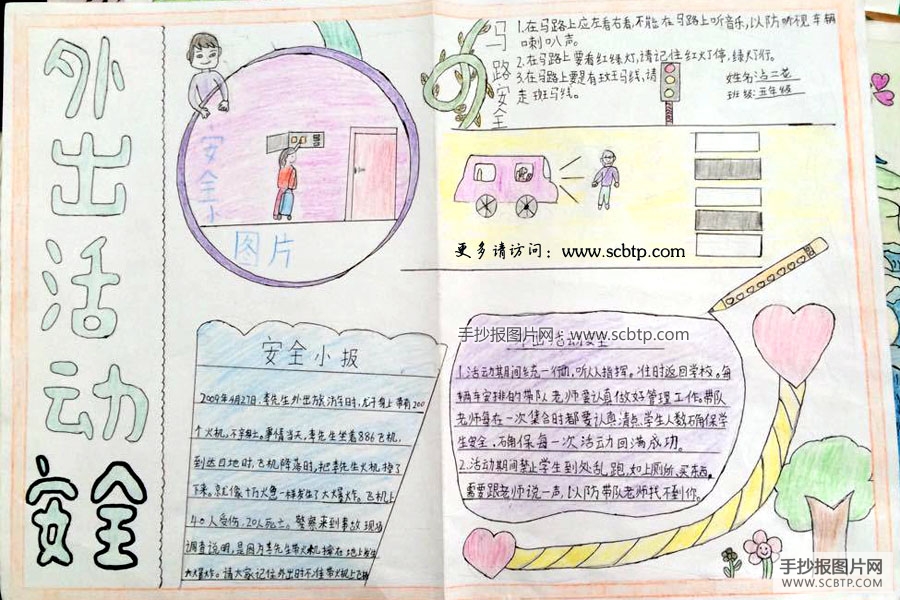 外出活动
安全
安全小
图片
马路安全
1.在马路上应左看右看,不能在马路上听音乐,以防听视车辆
喇叭声。
2.在马路上要看红绿灯,请记住红灯停,绿灯行。
3.在马路上要是有斑马线,请
走斑马线。
姓名:
班级:五年级
更多请访问：www.scbtp.com
安全小报
2009年4月27日,李先生外出旅游
带有200
个火机,
事情当天,李先生坐着886飞机,
到达目地时,飞机降落时,把李先生火机掉了
下来,就像十万火鱼一样发生了大大爆炸。飞机上
40人受伤,20人死亡。警察来到事故现场
调查说明,是因为李先生带火机掉在地上发生
大大爆炸。请大家记住外出时不准带火机上飞机
手抄报图片网：www.scbtp.com
1.活动期间统一行动,听从指挥。准时返回学校。每
辆车安排的带队老师要认真做好管理工作,带队
老师每在一次集合时都要认真清点学生人数确保学
生安全,确保每一次活动圆满成功。
2.活动期间禁止学生到处乱跑,如上厕所、买东西,
需要跟老师说一声,以防带队老师找不到你。
手抄报图片网
WWW.SCBTP.COM